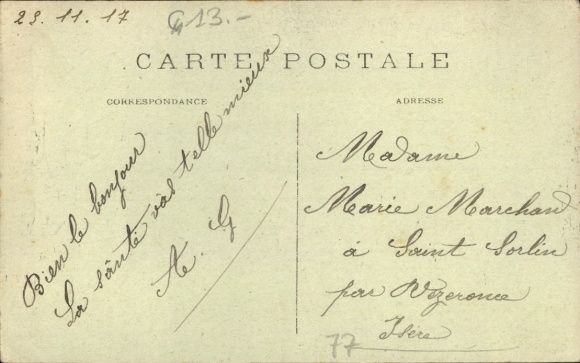 23.11.17
G 13.-
CARTE POSTALE
CORRESPONDANCE
ADRESSE
Bien le bonjour
La sânté vas telle mieux
A. G
Madame
Marie Marchand
à Saint Sorlin
par Vezeronce
Isère
77